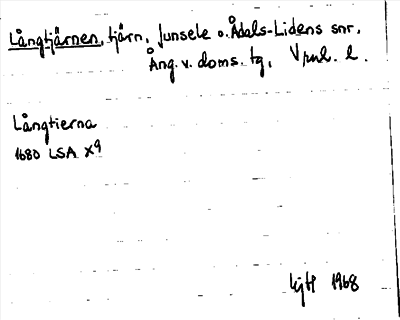 Långtjärnen, tjärn, Junsele o. Ådals-Lidens snr,
Ång. v. doms. tg, Vrnl. l.
Långtierna
1680 LSA X9
1968